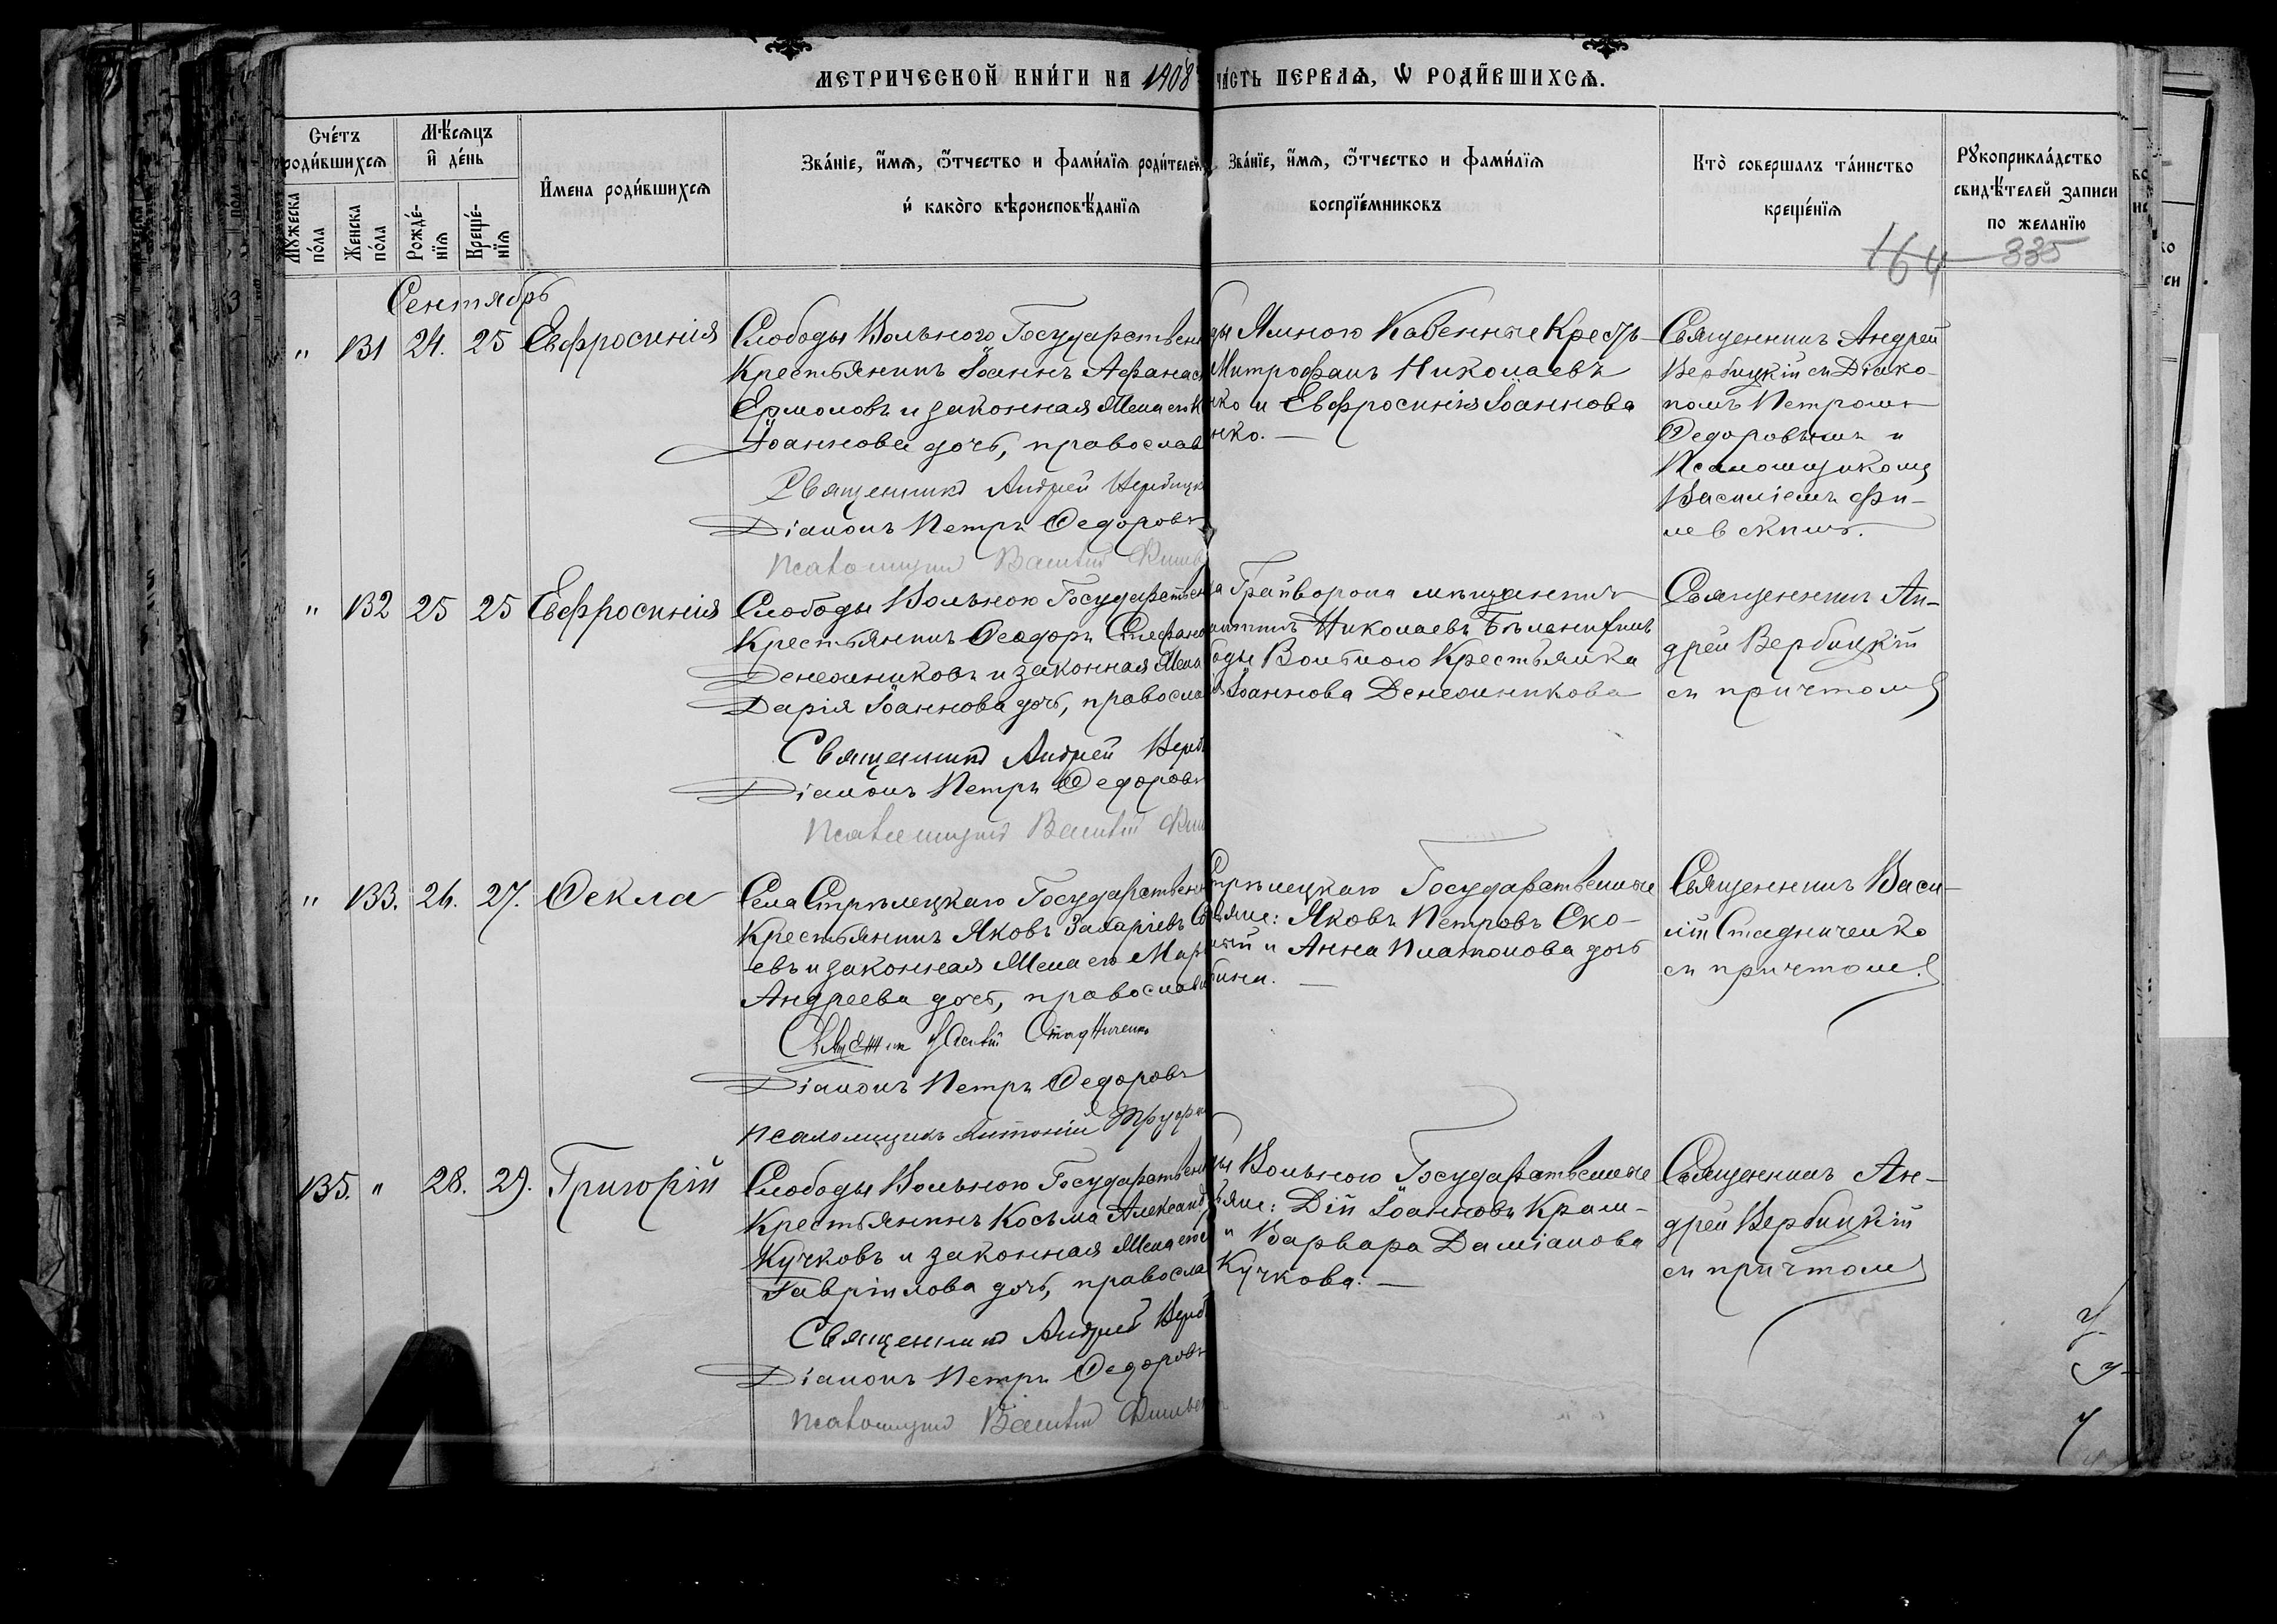 МЕТРИЧЕСКОЙ КНИ́ГИ НА 1908
ЧА́СТЬ ПЕРВАѦ, Ѡ РОДИ́ВШИХСѦ.
Сче́тъ родившихсѧ
Мѣ́сѧцъ и де́нь
Мꙋжеска по́ла
Женска по́ла
Рожде́нїѧ
Креще́нїѧ
Имена роди́вшихсѧ
Зва́нїе, и́мѧ, ѻ́тчество и фами́лїѧ роди́телей,
и како̀го вѣроисповѣ́данїѧ
Зва́нїе, и́мѧ, ѻ́тчество и фами́лїѧ
воспрїе́мниковъ
Кто̀ совершалъ та́инство
креще́нїѧ
Рꙋкоприкла́дство
свидѣ́телей записи
по желанїю
164 335
Сентябрь
" 131 24. 25 Евфросинія
Слободы Вольного Государствен
Крестьянинъ Іоаннъ Афанас
Ермоловъ и законная жена его
Іоаннова дочь, православ
Священникъ Андрей Вербицк
Діаконъ Петръ Федоровъ
Псаломщикъ Василій
ды Ямного Казенные Кресть-
Митрофанъ Николаевъ
ко и Евфросинія Іоаннова
нко.
Священникъ Андрей
Вербицкій съ Діако-
номъ Петромъ
Федоровымъ и
Псаломщикомъ
Василіемъ Фи-
левскимъ.
" 132 25 25 Евфросинія
Слободы Вольного Государствен
Крестьянинъ Феодоръ Стефано
и законная жена
Дарія Іоаннова дочь, правосла
Священникъ Андрей Верб
Діаконъ Петръ Федоровъ
Псаломщикъ Василій
а Грайворона мещанинъ
Николаевъ
оды Вольного Крестьянка
Іоаннова
Священникъ Ан-
дрей Вербицкій
съ причтомъ
" 133. 26. 27. Фекла
Села Стрелецкаго Государствен
Крестьянинъ Яковъ Захаріевъ
евъ и законная жена его Мар
Андреева дочь, православ
Василій Стадниченко
Діаконъ Петръ Федоровъ
Псаломщикъ Антоній
Стрелецкаго Государственные
ьяне: Яковъ Петровъ Ско-
и Анна Платонова дочь
бина.
Священникъ Васи-
лій Стадниченко
съ причтомъ.
135. " 28. 29. Григорій
Слободы Вольного Государствен
Крестьянинъ Косьма Александ
Кучковъ и законная жена его
Гавріилова дочь, правосла
Священникъ Андрей Верб
Діаконъ Петръ Федоровъ
Псаломщикъ Василій
ды Вольного Государственные
ьяне: Дій Іоанновъ Крам-
и Варвара Даміанова
Кучкова.
Священникъ Ан-
дрей Вербицкій
съ причтомъ